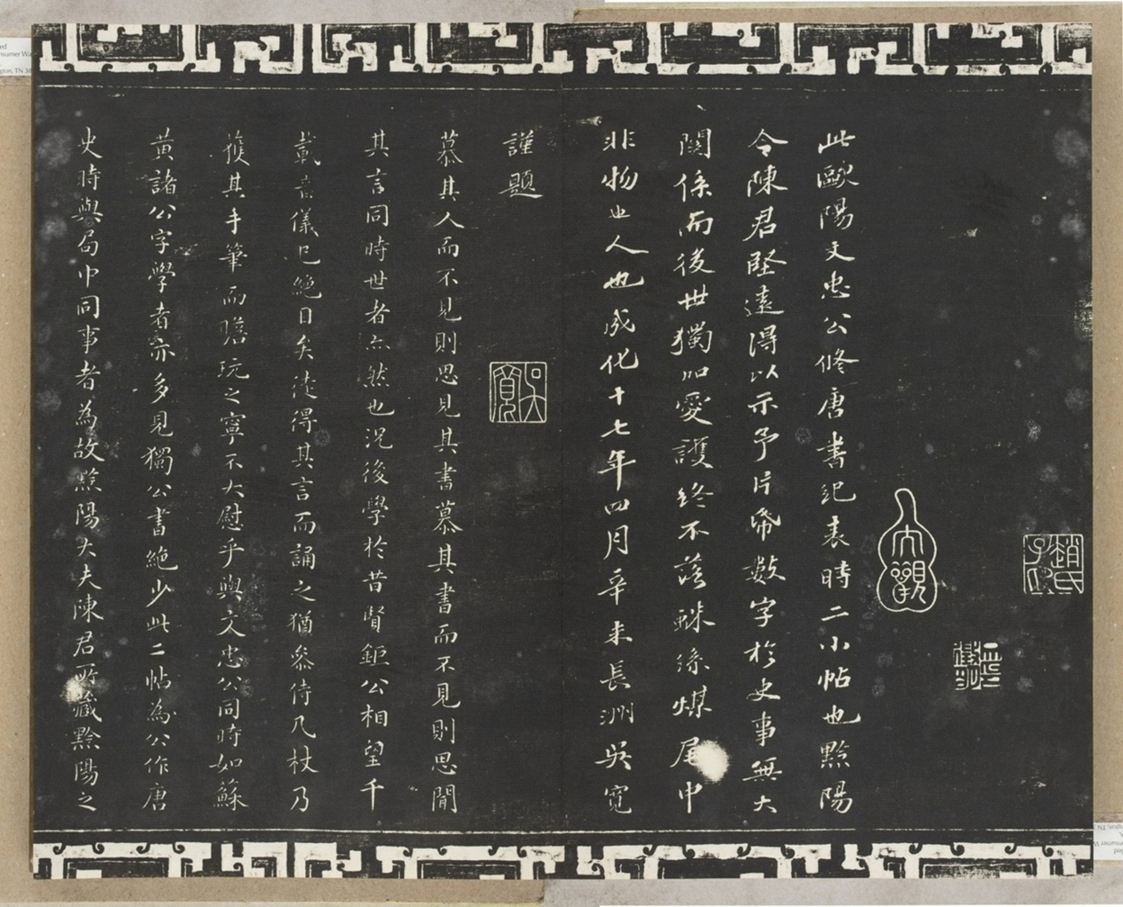 趙氏子昂
大觀
此歐陽文忠公修唐書紀表時二小帖也黟陽
令陳君堅遠得以示予片紙數字於史事無大
關係而後世獨加愛護終不落蛛絲煤尾中
非物也人也成化十七年四月辛未長洲吳寬
謹題
吳寬
慕其人而不見則思見其書慕其書而不見則思聞
其言同時世者亦然也況後學於昔賢鉅公相望千
載音儀已絕日矣徒得其言而誦之猶參侍几杖乃
獲其手筆而瞻玩之寧不大慰乎與文忠公同時如蘇
黃諸公字學者亦多見獨公書絕少此二帖為公作唐
史時與局中同事者為故黟陽大夫陳君所藏黟陽之